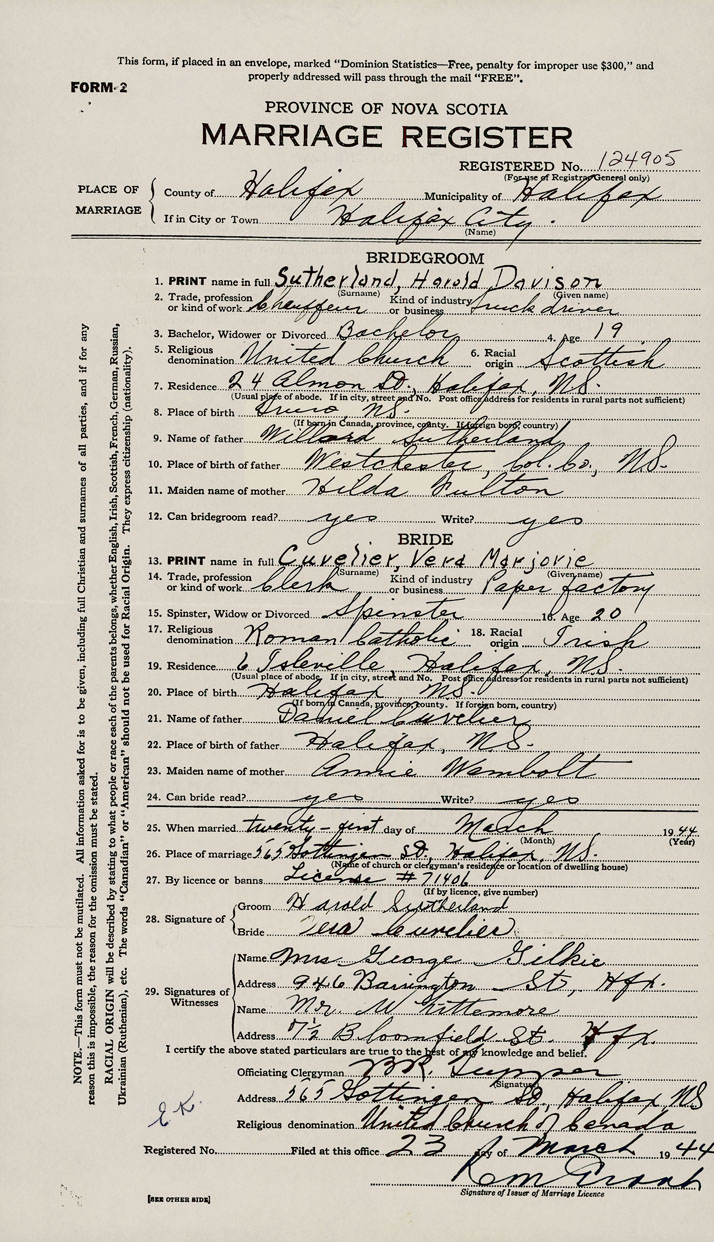 This form, if placed in an envelope, marked "Dominion Statistics—Free, penalty for improper use $300," and
properly addressed will pass through the mail "FREE".
FORM 2
PROVINCE OF NOVA SCOTIA
MARRIAGE REGISTER
REGISTERED No. 124905
(For use of Registrar General only)
PLACE OF MARRIAGE
County of Halifax Municipality of Halifax
If in City or Town Halifax City.
(Name)
BRIDEGROOM
1. PRINT name in full Sutherland, Harold Davison
(Surname) (Given name)
2. Trade, profession or kind of work Chauffeur Kind of industry or business truck driver
3. Bachelor, Widower or Divorced Bachelor 4. Age 19
5. Religious denomination United Church 6. Racial origin Scottish
7. Residence 24 Almon St., Halifax, NS.
(Usual place of abode. If in city, street and No. Post office address for residents in rural parts not sufficient)
8. Place of birth Truro, NS.
(If born in Canada, province, county. If foreign born, country)
9. Name of father Willard Sutherland
10. Place of birth of father Westchester, Col. Co., NS.
11. Maiden name of mother Hilda Fulton
12. Can bridegroom read? yes Write? yes
BRIDE
13. PRINT name in full Cuvelier, Vera Marjorie
(Surname) (Given name)
14. Trade, profession or kind of work Clerk Kind of industry or business Paper factory
15. Spinster, Widow or Divorced Spinster 16. Age 20
17. Religious denomination Roman Catholic 18. Racial origin Irish
19. Residence 6 Isleville, Halifax, NS.
(Usual place of abode. If in city, street and No. Post office address for residents in rural parts not sufficient)
20. Place of birth Halifax, NS.
(If born in Canada, province, county. If foreign born, country)
21. Name of father Daniel Cuvelier
22. Place of birth of father Halifax, NS.
23. Maiden name of mother Annie Wambolt
24. Can bride read? yes Write? yes
25. When married twenty-first day of March 1944
(Month) (Year)
26. Place of marriage 565 Gottingen St., Halifax, NS.
(Name of church or clergyman's residence or location of dwelling house)
27. By licence or banns License # 71406
(If by licence, give number)
28. Signature of
Groom Harold Sutherland
Bride Vera Cuvelier
29. Signatures of Witnesses
Name Mrs. George Gilkie
Address 946 Barrington St., Hfx.
Name Mr. W Kittemore
Address 7½ Bloomfield St. Hfx.
I certify the above stated particulars are true to the best of my knowledge and belief.
Officiating Clergyman
(Signature)
Address 565 Gottingen St., Halifax NS
Religious denomination United Church of Canada
Registered No. Filed at this office 23 day of March 1944
Signature of Issuer of Marriage Licence
[SEE OTHER SIDE]
E.K.
NOTE.—This form must not be mutilated. All information asked for is to be given, including full Christian and surnames of all parties, and if for any
reason this is impossible, the reason for the omission must be stated.
RACIAL ORIGIN will be described by stating to what people or race each of the parents belongs, whether English, Irish, Scottish, French, German, Russian,
Ukrainian (Ruthenian), etc. The words "Canadian" or "American" should not be used for Racial Origin. They express citizenship (nationality).